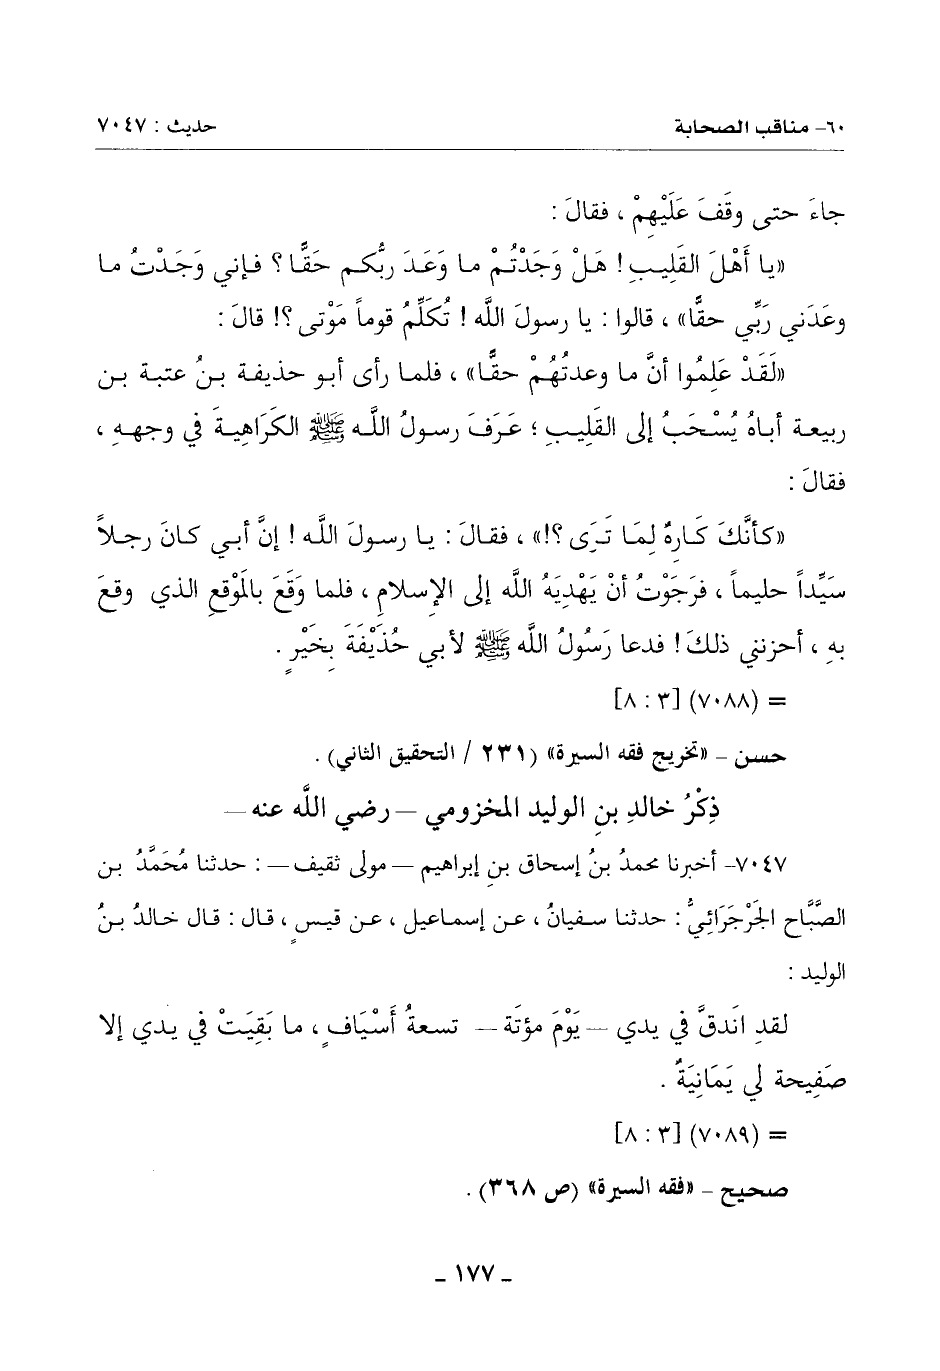 ٦٠- مناقب الصحابة حديث : ٧٠٤٧
جاءَ حتى وقَفَ عَلَيْهِمْ ، فقالَ :
«يا أَهْلَ القَلِيبِ ! هَلْ وَجَدْتُمْ ما وَعَدَ ربُّكم حَقًّا ؟ فإني وَجَدْتُ ما
وعَدَني رَبِّي حقًّا» ، قالوا : يا رسولَ اللَّه ! تُكَلِّمُ قوماً مَوْتى ؟! قالَ :
«لَقَدْ عَلِمُوا أنَّ ما وعدتُهُمْ حقًّا» ، فلما رأى أبو حذيفة بنُ عتبة بن
ربيعة أباهُ يُسْحَبُ إلى القَلِيبِ ؛ عَرَفَ رسولُ اللَّه ﷺ الكَرَاهِيةَ في وجههِ ،
فقالَ :
«كأنَّكَ كَارِهٌ لِمَا تَرَى ؟!» ، فقالَ : يا رسولَ اللَّه ! إنَّ أبي كانَ رجلاً
سَيِّداً حليماً ، فَرَجَوْتُ أنْ يَهْدِيَهُ اللَّه إلى الإسلامِ ، فلما وَقَعَ بالمَوْقعِ الذي وقعَ
بهِ ، أحزنني ذلكَ ! فدعا رَسُولُ اللَّه ﷺ لأبي حُذَيْفَةَ بِخَيْرٍ .
= (٧٠٨٨) [٣ : ٨]
حسن - «تخريج فقه السيرة» (٢٣١ / التحقيق الثاني) .
ذِكْرُ خالدِ بنِ الوليد المخزومي – رضي اللَّه عنه –
٧٠٤٧- أخبرنا محمدُ بنُ إسحاق بنِ إبراهيم – مولى ثقيف – : حدثنا مُحَمَّدُ بن
الصَّبَّاحِ الجَرْجَرَائِيُّ : حدثنا سفيانُ ، عن إسماعيل ، عن قيسٍ ، قال : قال خالدُ بنُ
الوليد :
لقدِ اندقَّ في يدي – يَوْمَ مؤتَة – تسعةُ أَسْيَافٍ ، ما بَقِيَتْ في يدي إلا
صَفِيحة لي يَمَانِيَةٌ .
= (٧٠٨٩) [٣ : ٨]
صحيح - «فقه السيرة» (ص ٣٦٨) .
- ١٧٧ -